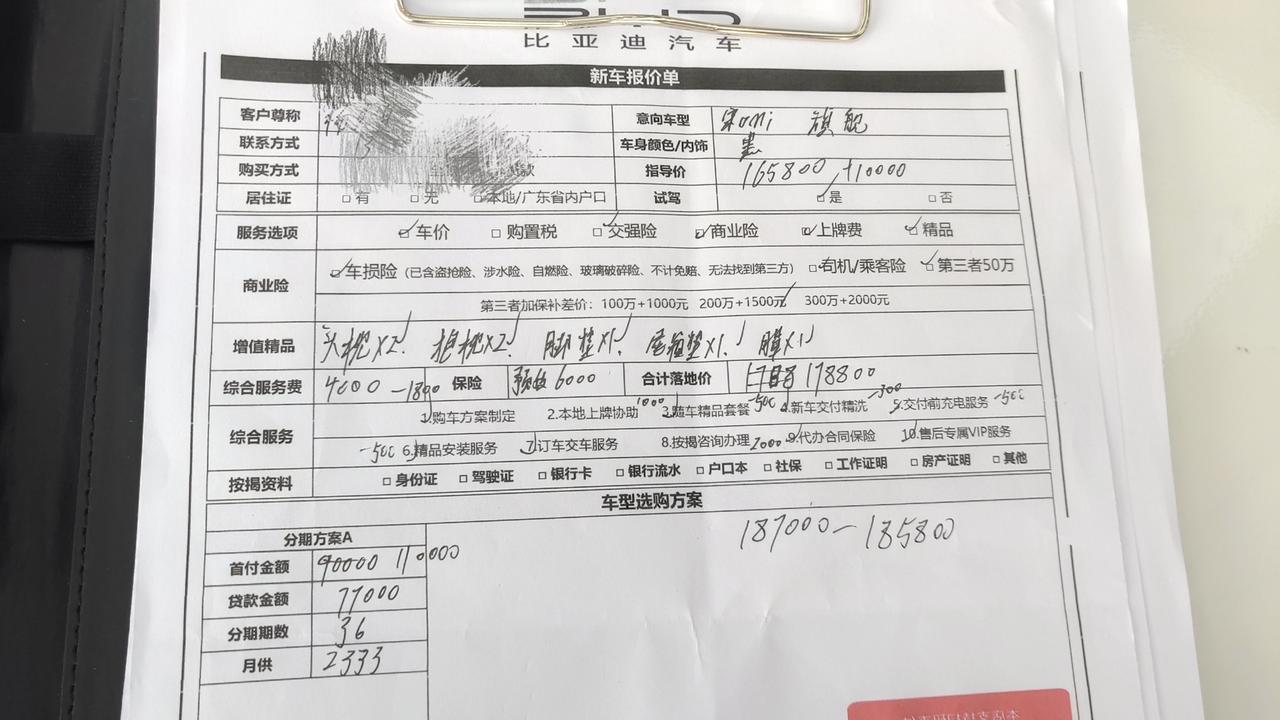 比亚迪汽车
新车报价单
客户尊称 意向车型 宋DMi 旗舰
联系方式 车身颜色/内饰 黑
购买方式 款 指导价 165800 +10000
居住证 □有 □无 □本地/广东省内户口 试驾 □是 □否
服务选项 □车价 □购置税 □交强险 □商业险 □上牌费 □精品
商业险 □车损险（已含盗抢险、涉水险、自燃险、玻璃破碎险、不计免赔、无法找到第三方） □司机/乘客险 □第三者50万
第三者加保补差价：100万+1000元 200万+1500元 300万+2000元
增值精品 头枕X2、抱枕X2、脚垫X1、尾箱垫X1、膜X1
综合服务费 4000 -1800 保险 预收6000 合计落地价 178800
综合服务 1.购车方案制定 2.本地上牌协助 1000 3.随车精品套餐 -500 4.新车交付精洗 -300 5.交付前充电服务 -500
-500 6.精品安装服务 7.订车交车服务 8.按揭咨询办理 2000 9.代办合同保险 10.售后专属VIP服务
按揭资料 □身份证 □驾驶证 □银行卡 □银行流水 □户口本 □社保 □工作证明 □房产证明 □其他
车型选购方案
分期方案A
187000-185800
首付金额 90000 110000
贷款金额 77000
分期期数 36
月供 2333